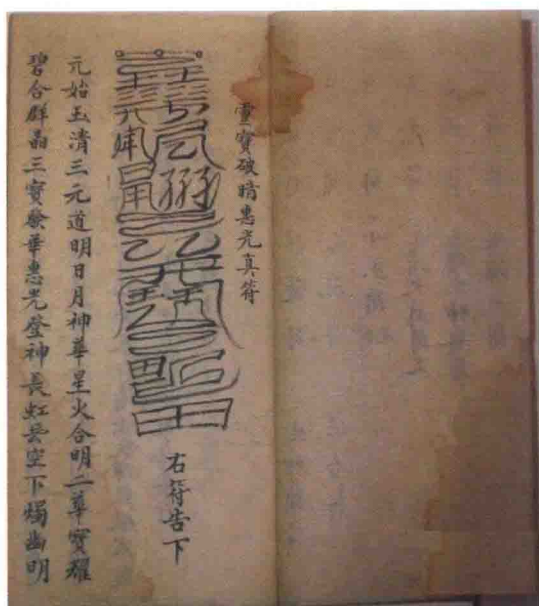 靈寶破暗惠光真符
右符告下
元始玉清三元道明日月神華星火合明二華寶耀
碧合群晶三寶發華惠光登神長虹亘空下燭幽明